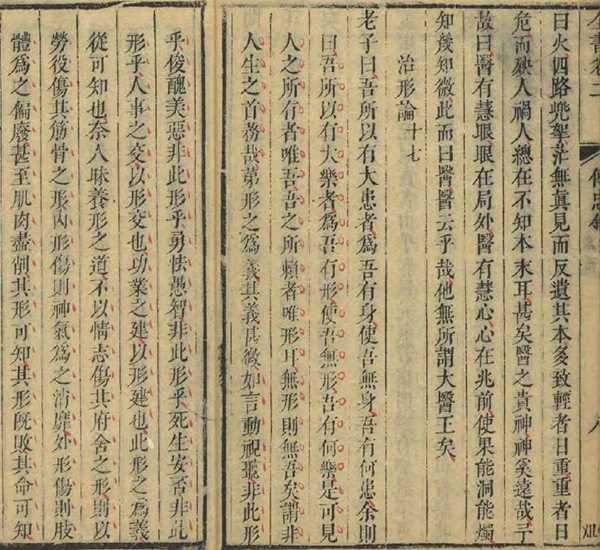 曰火四路兜拏茫無真見而反遺其本多致輕者日重重者日
危而殃人禍人總在不知本末耳甚矣醫之貴神神奚遠哉予
故曰醫有慧眼眼在局外醫有慧心心在兆前使果能洞能燭
知幾知微此而曰醫醫云乎哉他無所謂大醫王矣
治形論十七
老子曰吾所以有大患者爲吾有身使吾無身吾有何患余則
曰吾所以有大樂者爲吾有形使吾無形吾有何樂是可見
人之所有者唯吾吾之所賴者唯形耳無形則無吾矣謂非
人生之首務哉第形之爲義其義甚微如言動視聽非此形
乎俊醜美惡非此形乎勇怯愚智非此形乎死生安否非此
形乎人事之交以形交也功業之建以形建也此形之爲義
從可知也奈人昧養形之道不以情志傷其府舍之形則以
勞役傷其筋骨之形內形傷則神氣爲之消靡外形傷則肢
體爲之偏廢甚至肌肉盡削其形可知其形既敗其命可知